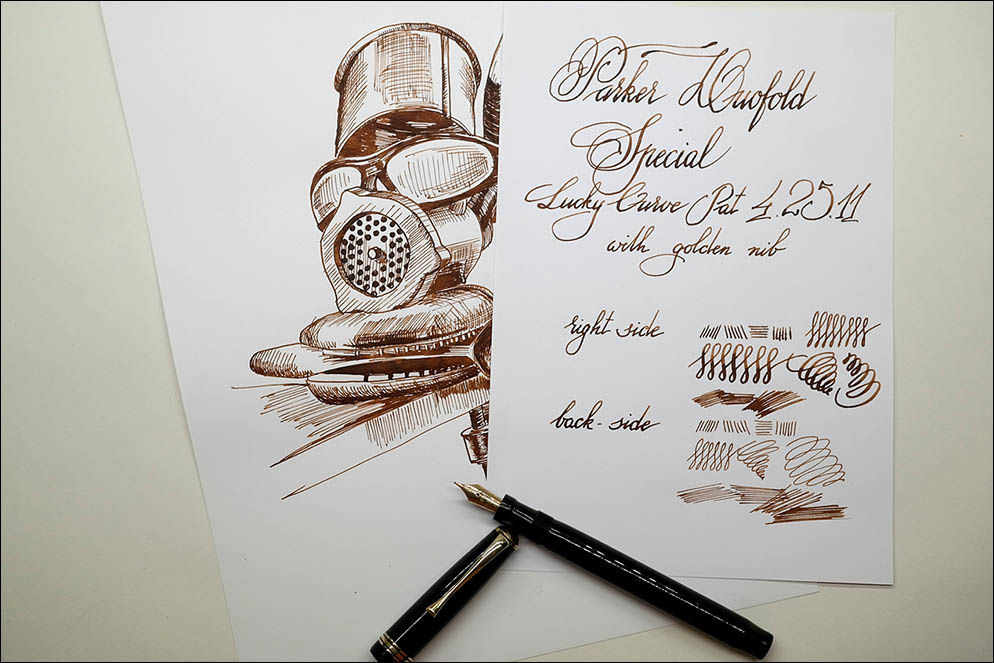 Parker Duofold
Special
Lucky Curve Pat 4.25.11
with golden nib
right side
back-side